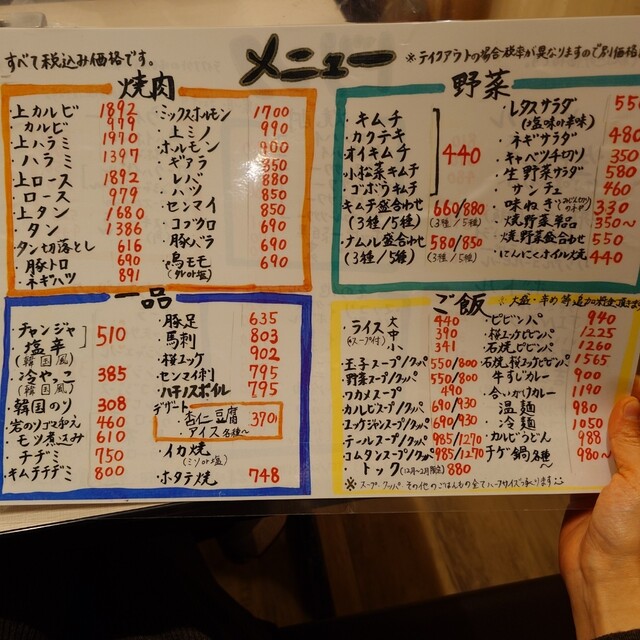 すべて税込み価格です。
メニュー
※テイクアウトの場合税率が異なりますので別価格
焼肉
・上カルビ 1892
・カルビ 979
・上ハラミ 1970
・ハラミ 1397
・上ロース 1892
・ロース 979
・上タン 1680
・タン 1386
・タン切落とし 616
・豚トロ 690
・ネギハツ 891
・ミックスホルモン 1700
・上ミノ 990
・ホルモン 900
・ギアラ 850
・レバ 880
・ハツ 850
・センマイ 850
・コブクロ 690
・豚バラ 690
・鳥モモ 690
(タレor塩)
野菜
・キムチ
・カクテキ
・オイキムチ
・小松菜キムチ
・ゴボウキムチ
440
・キムチ盛合わせ 660/880
(3種/5種) (3種/5種)
・ナムル盛合わせ 580/850
(3種/5種) (3種/5種)
・レタスサラダ 550
(塩味or辛味)
・ネギサラダ 480
・キャベツ千切り 350
・生野菜サラダ 580
・サンチュ 460
・味ねぎ 330
・焼野菜単品 350〜
・焼野菜盛合わせ 550
・にんにくホイル焼 440
一品
・チャンジャ
・塩辛
(韓国風)
510
・冷やっこ 385
(韓国風)
・韓国のり 308
・岩のりゴマ和え 460
・モツ煮込み 610
・チヂミ 750
・キムチチヂミ 800
・豚足 635
・馬刺 803
・桜ユッケ 902
・センマイ刺 795
・ハチノスボイル 795
デザート
・杏仁豆腐 370
アイス各種〜
・イカ焼
(ミソor塩)
・ホタテ焼 748
ご飯
・ライス 大 440
(スープ付) 中 390
小 341
・玉子スープ/クッパ 550/800
・野菜スープ/クッパ 550/800
・ワカメスープ 490
・カルビスープ/クッパ 690/930
・ユッケジャンスープ/クッパ 690/930
・テールスープ/クッパ 985/1270
・コムタンスープ/クッパ 985/1270
・トック(12月〜2月限定) 880
・ビビンバ 940
・桜ユッケビビンバ 1225
・石焼ビビンバ 1260
・石焼桜ユッケビビンバ 1565
・牛すじカレー 900
・合いがけカレー 1190
・温麺 980
・冷麺 1050
・カルビうどん 988
・チゲ鍋各種〜 980〜
※スープ・クッパ、その他のごはんもの全てハーフサイズ